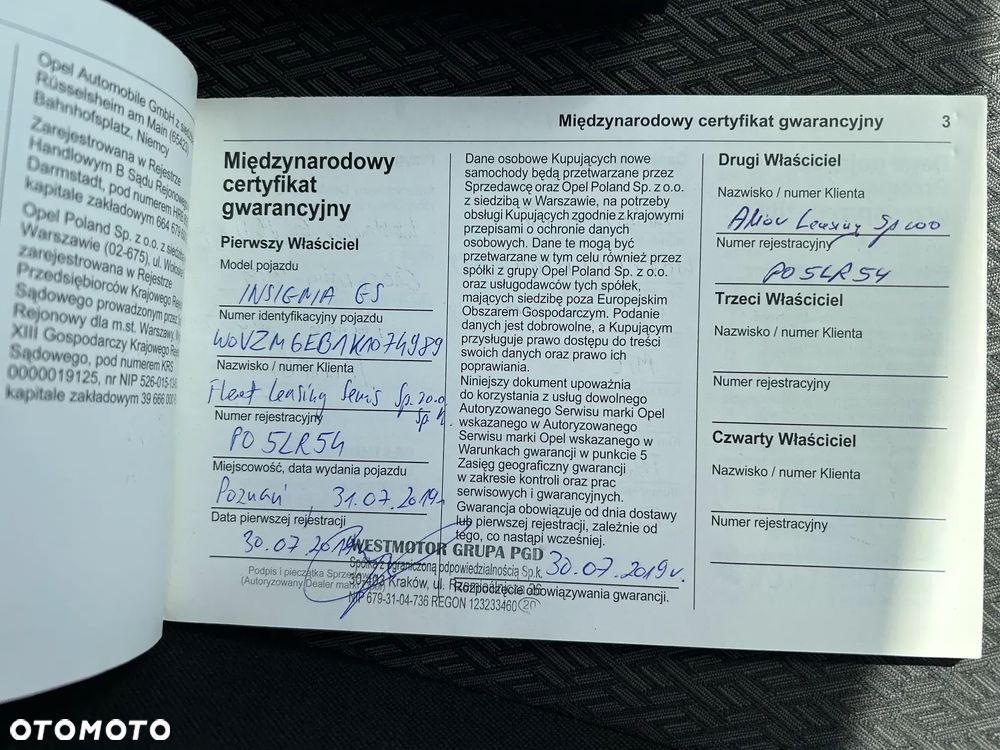 Opel Automobile GmbH z
Rüsselsheim am Main (65423
Bahnhofsplatz, Niemcy
Zarejestrowana w Rejestrze
Handlowym B Sądu Rejonowego
Darmstadt, pod numerem HRB
kapitale zakładowym 664 679
Opel Poland Sp. z o.o. z siedzibą
Warszawie (02-675), ul.
zarejestrowana w Rejestrze
Przedsiębiorców Krajowego
Sądowego prowadzonym przez
Rejonowy dla m.st. Warszawy,
XIII Gospodarczy Krajowego
Sądowego, pod numerem KRS
0000019125, nr NIP 526-015-
kapitale zakładowym 39 666
Międzynarodowy certyfikat gwarancyjny 3
Międzynarodowy
certyfikat
gwarancyjny
Pierwszy Właściciel
Model pojazdu
INSIGNIA GS
Numer identyfikacyjny pojazdu
W0VZM6EB1K1074989
Nazwisko / numer Klienta
Fleet Leasing Sp. z o.o.
Sp. k.
Numer rejestracyjny
PO 5LR54
Miejscowość, data wydania pojazdu
Poznań 31.07.2019r.
Data pierwszej rejestracji
30.07.2019r.
Podpis i pieczątka
(Autoryzowany Dealer
WESTMOTOR GRUPA PGD
Spółka z ograniczoną odpowiedzialnością Sp.k.
30-403 Kraków, ul. Rzemieślnicza 26
NIP 679-31-04-736 REGON 123233460 20
Dane osobowe Kupujących nowe
samochody będą przetwarzane przez
Sprzedawcę oraz Opel Poland Sp. z o.o.
z siedzibą w Warszawie, na potrzeby
obsługi Kupujących zgodnie z krajowymi
przepisami o ochronie danych
osobowych. Dane te mogą być
przetwarzane w tym celu również przez
spółki z grupy Opel Poland Sp. z o.o.
oraz usługodawców tych spółek,
mających siedzibę poza Europejskim
Obszarem Gospodarczym. Podanie
danych jest dobrowolne, a Kupującym
przysługuje prawo dostępu do treści
swoich danych oraz prawo ich
poprawiania.
Niniejszy dokument upoważnia
do korzystania z usług dowolnego
Autoryzowanego Serwisu marki Opel
wskazanego w Autoryzowanego
Serwisu marki Opel wskazanego w
Warunkach gwarancji w punkcie 5
Zasięg geograficzny gwarancji
w zakresie kontroli oraz prac
serwisowych i gwarancyjnych.
Gwarancja obowiązuje od dnia dostawy
lub pierwszej rejestracji, zależnie od
tego, co nastąpi wcześniej.
30.07.2019r.
Rozpoczęcie obowiązywania gwarancji.
Drugi Właściciel
Nazwisko / numer Klienta
Alior Leasing Sp zoo
Numer rejestracyjny
PO 5LR54
Trzeci Właściciel
Nazwisko / numer Klienta
Numer rejestracyjny
Czwarty Właściciel
Nazwisko / numer Klienta
Numer rejestracyjny
OTOMOTO